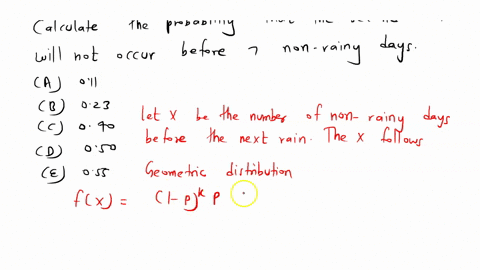 Calculate the probability that the
will not occur before 7 non-rainy days.
(A) 0.11
(B) 0.23
(C) 0.40
(D) 0.50
(E) 0.55
let X be the number of non-rainy days
before the next rain. The X follows
Geometric distribution
f(x) = (1-p)^k p